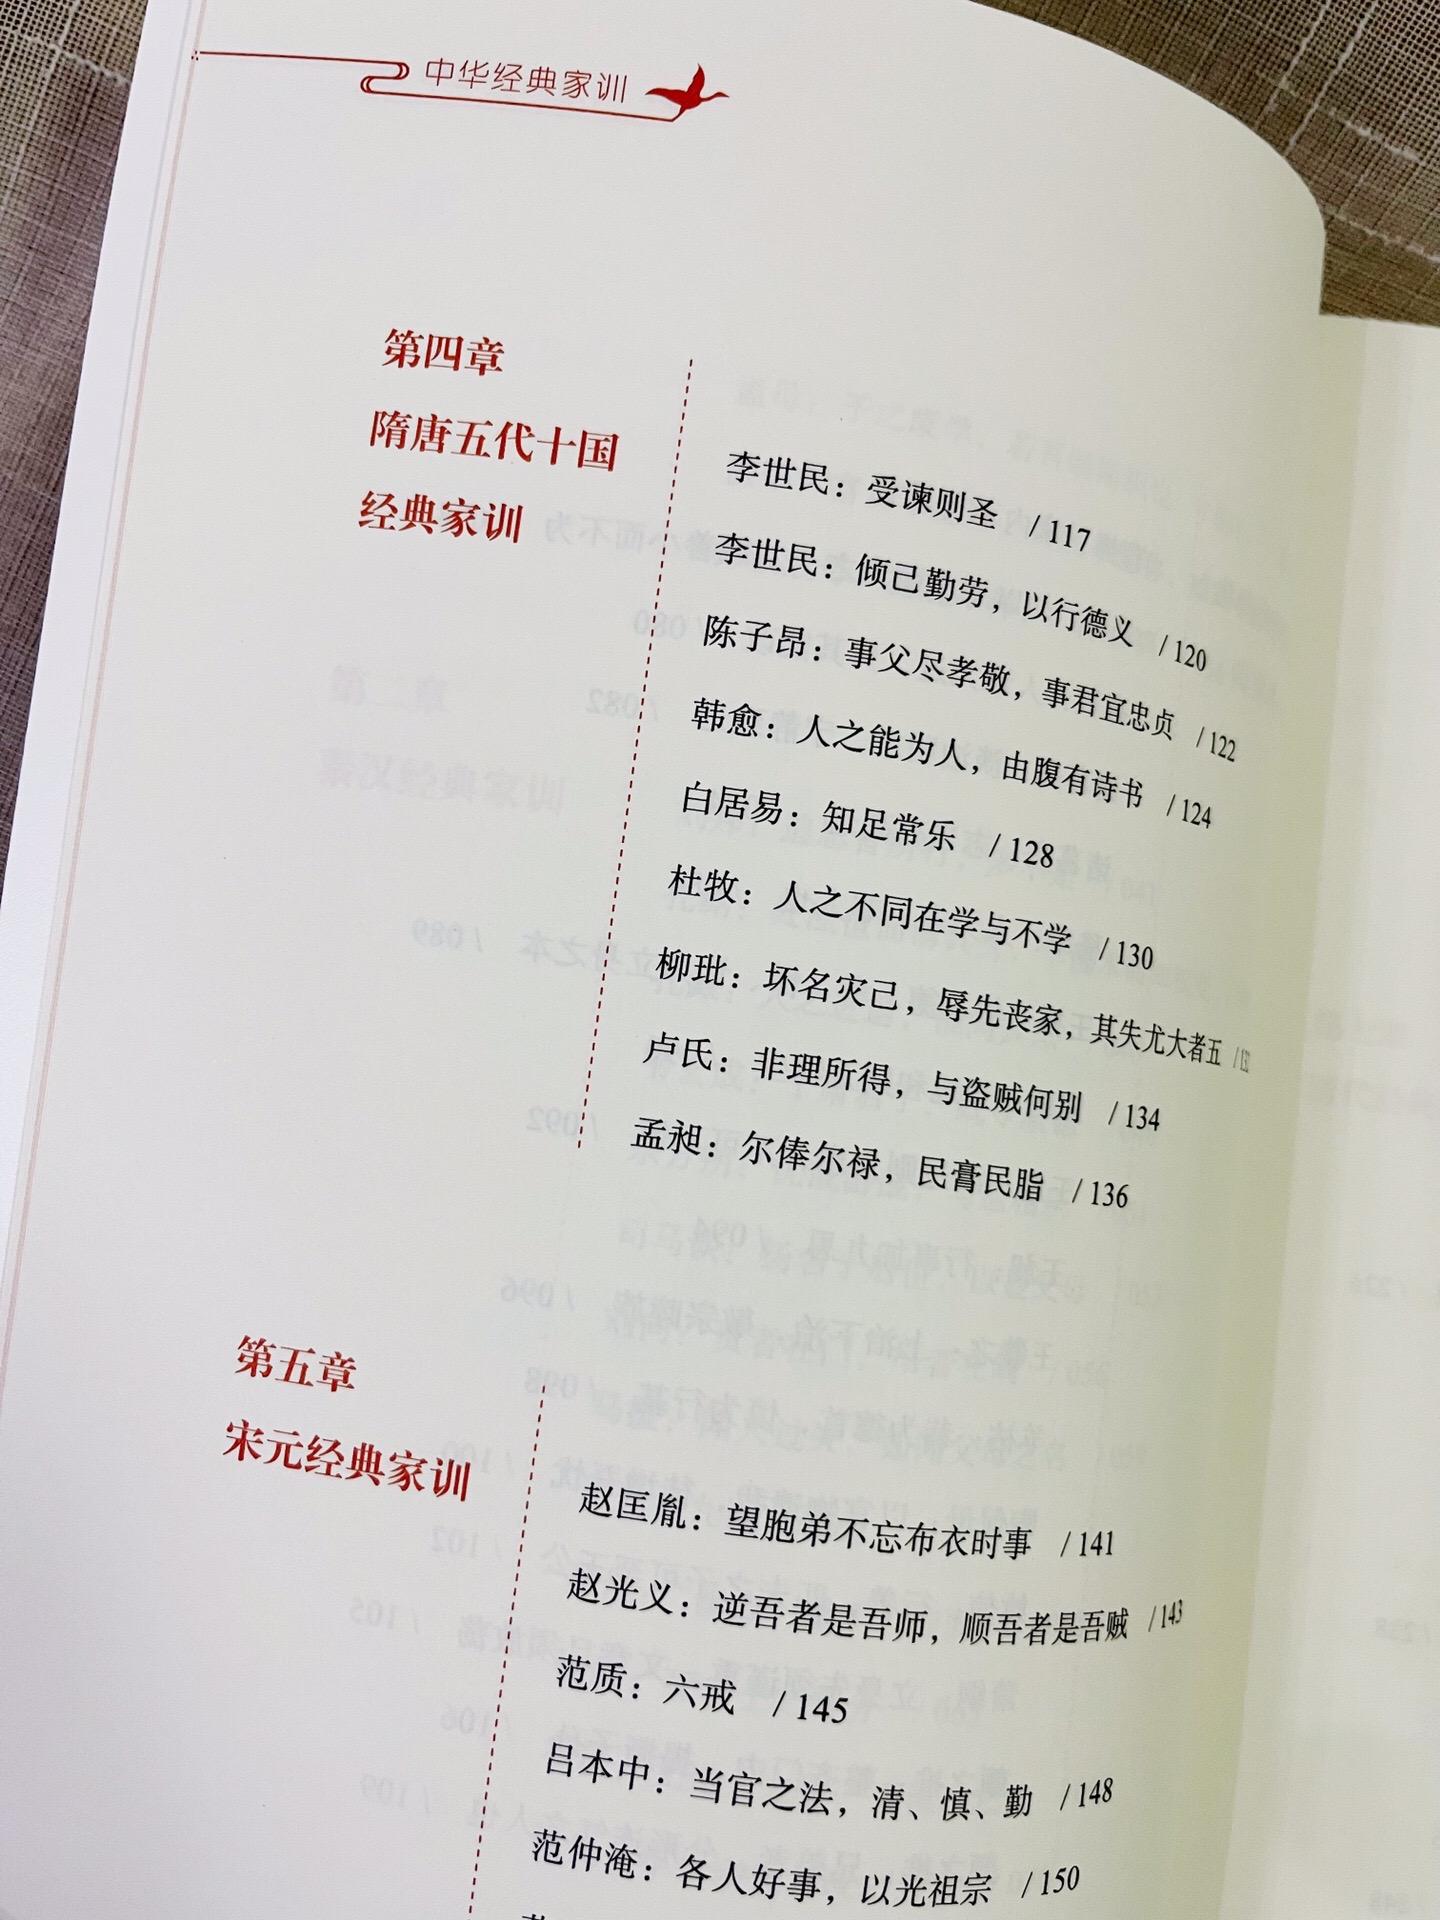 中华经典家训
第四章
隋唐五代十国
经典家训
李世民：受谏则圣 /117
李世民：倾己勤劳，以行德义 /120
陈子昂：事父尽孝敬，事君宜忠贞 /122
韩愈：人之能为人，由腹有诗书 /124
白居易：知足常乐 /128
杜牧：人之不同在学与不学 /130
柳玭：坏名灾己，辱先丧家，其失尤大者五 /132
卢氏：非理所得，与盗贼何别 /134
孟昶：尔俸尔禄，民膏民脂 /136
第五章
宋元经典家训
赵匡胤：望胞弟不忘布衣时事 /141
赵光义：逆吾者是吾师，顺吾者是吾贼 /143
范质：六戒 /145
吕本中：当官之法，清、慎、勤 /148
范仲淹：各人好事，以光祖宗 /150